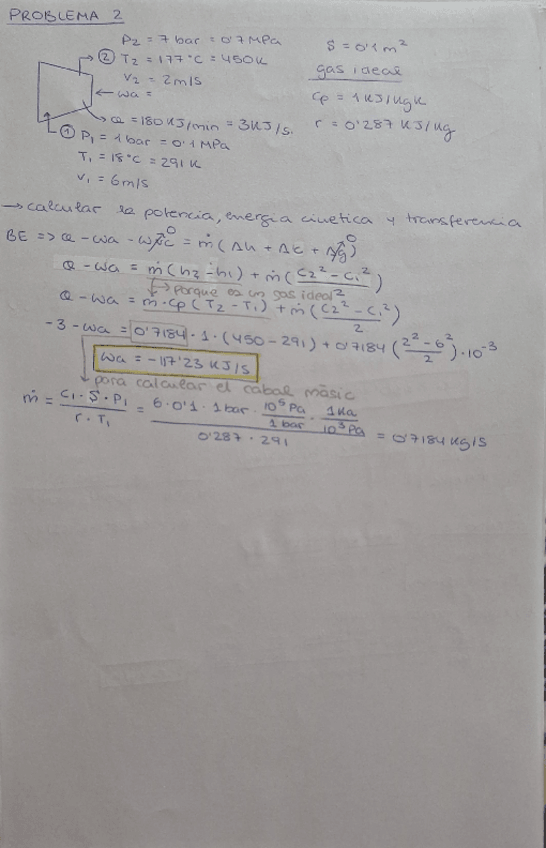 PROBLEMA 2
P2 = 7 bar = 0'7 MPa
② T2 = 177°C = 450K
V2 = 2m/s
wa =
Q = 180 KJ/min = 3KJ/s.
① P1 = 1 bar = 0'1 MPa
T1 = 18°C = 291 K
V1 = 6m/s
S = 0'1 m²
gas ideal
Cp = 1 KJ/KgK
r = 0'287 KJ/Kg
→ calcular la potencia, energia cinetica y transferencia
BE => Q - wa - wfic⁰ = ṁ (Δh + Δc + Δg⁰)
Q - wa = ṁ (h2 - h1) + ṁ (C2² - C1²)/2
↳ porque es un gas ideal
Q - wa = ṁ · Cp (T2 - T1) + ṁ (C2² - C1²)/2
-3 - wa = 0'7184 · 1 · (450 - 291) + 0'7184 (2² - 6²/2) · 10⁻³
wa = -117'23 KJ/s
para calcular el cabal màsic
ṁ = C1 · S · P1 / r · T1 = 6 · 0'1 · 1 bar · 10⁵ Pa/1 bar · 1 Ka/10³ Pa / 0'287 · 291 = 0'7184 Kg/s